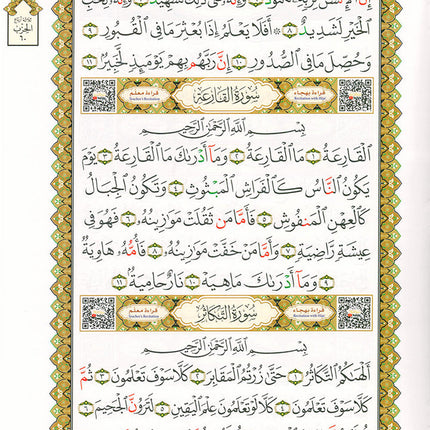 إِنَّ ٱلْإِنسَٰنَ لِرَبِّهِۦ لَكَنُودٌ ٦ وَإِنَّهُۥ عَلَىٰ ذَٰلِكَ لَشَهِيدٌ ٧ وَإِنَّهُۥ لِحُبِّ
ٱلْخَيْرِ لَشَدِيدٌ ٨ ۞ أَفَلَا يَعْلَمُ إِذَا بُعْثِرَ مَا فِى ٱلْقُبُورِ ٩
وَحُصِّلَ مَا فِى ٱلصُّدُورِ ١٠ إِنَّ رَبَّهُم بِهِمْ يَوْمَئِذٍ لَّخَبِيرٌۢ ١١
قراءة معلم
Teacher's Recitation
سُورَةُ القَارِعَةِ
قراءة بهجاء
Recitation with Hijaa
بِسْمِ ٱللَّهِ ٱلرَّحْمَٰنِ ٱلرَّحِيمِ
ٱلْقَارِعَةُ ١ مَا ٱلْقَارِعَةُ ٢ وَمَآ أَدْرَىٰكَ مَا ٱلْقَارِعَةُ ٣ يَوْمَ
يَكُونُ ٱلنَّاسُ كَٱلْفَرَاشِ ٱلْمَبْثُوثِ ٤ وَتَكُونُ ٱلْجِبَالُ
كَٱلْعِهْنِ ٱلْمَنفُوشِ ٥ فَأَمَّا مَن ثَقُلَتْ مَوَٰزِينُهُۥ ٦ فَهُوَ فِى
عِيشَةٍ رَّاضِيَةٍ ٧ وَأَمَّا مَنْ خَفَّتْ مَوَٰزِينُهُۥ ٨ فَأُمُّهُۥ هَاوِيَةٌ
٩ وَمَآ أَدْرَىٰكَ مَا هِيَهْ ١٠ نَارٌ حَامِيَةٌۢ ١١
قراءة معلم
Teacher's Recitation
سُورَةُ التَّكَاثُرِ
قراءة بهجاء
Recitation with Hijaa
بِسْمِ ٱللَّهِ ٱلرَّحْمَٰنِ ٱلرَّحِيمِ
أَلْهَىٰكُمُ ٱلتَّكَاثُرُ ١ حَتَّىٰ زُرْتُمُ ٱلْمَقَابِرَ ٢ كَلَّا سَوْفَ تَعْلَمُونَ ٣ ثُمَّ
كَلَّا سَوْفَ تَعْلَمُونَ ٤ كَلَّا لَوْ تَعْلَمُونَ عِلْمَ ٱلْيَقِينِ ٥ لَتَرَوُنَّ ٱلْجَحِيمَ ٦
الحزب
٦٠